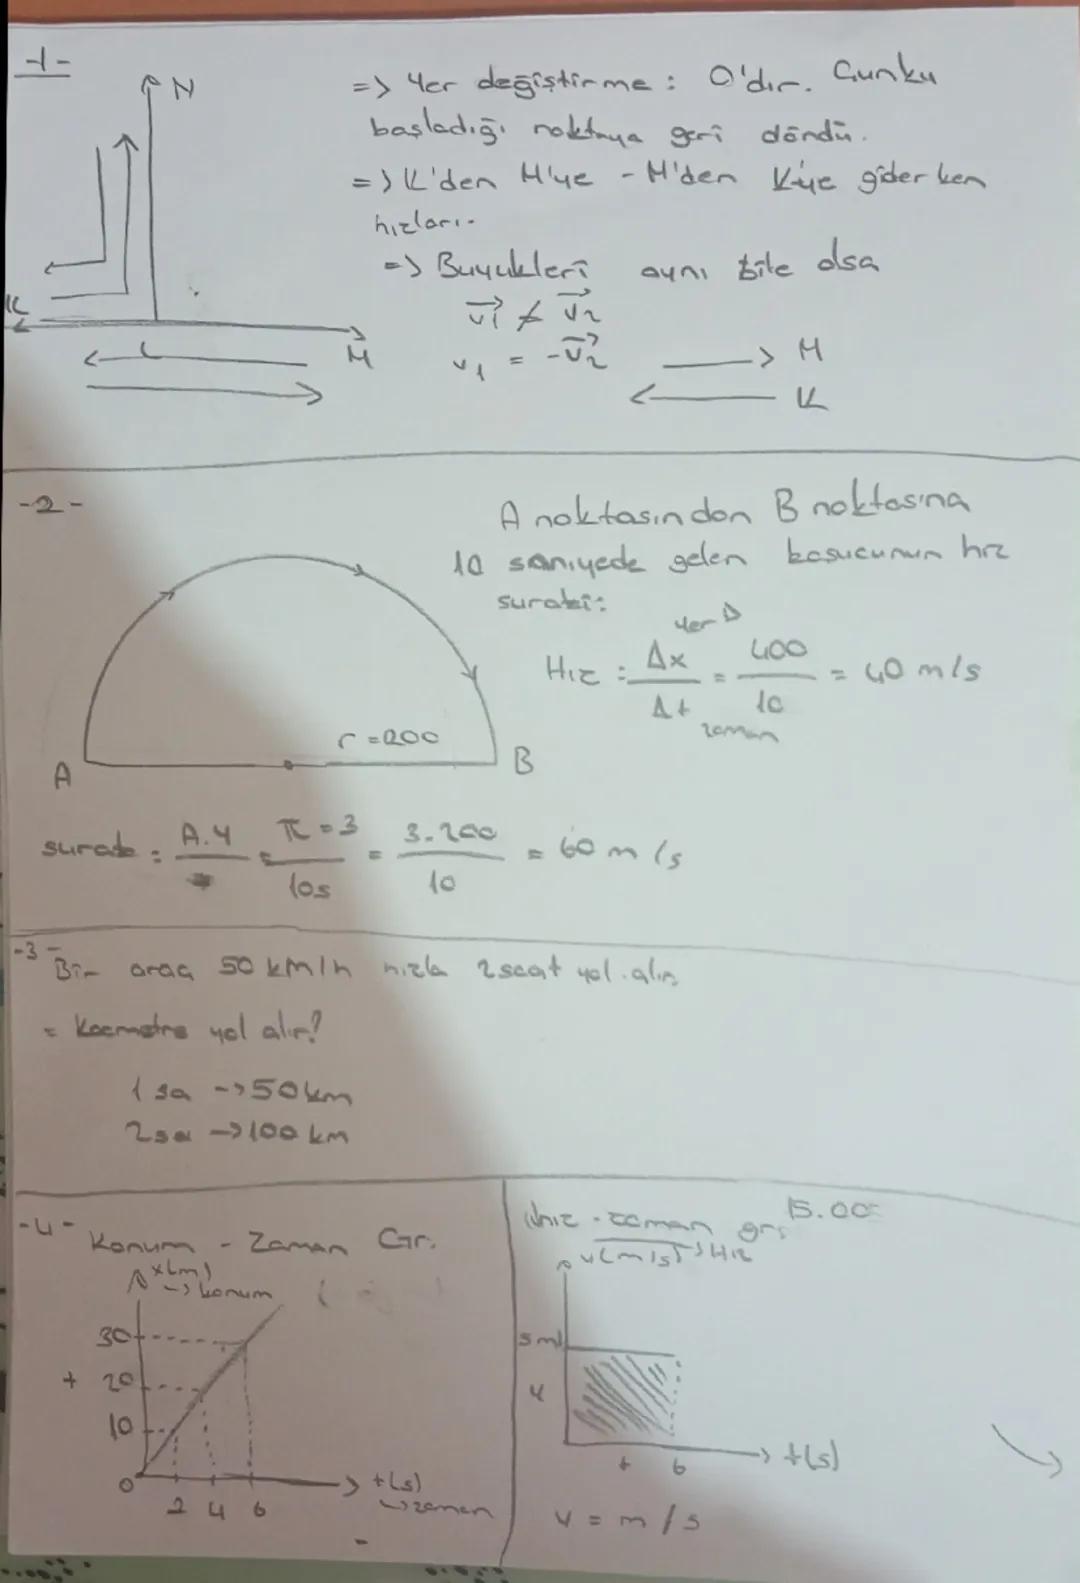 -1-
N
K
L
M
=> Yer değiştirme : 0'dır. Çunku
başladığı noktaya geri döndü.
=> K'den M'ye - M'den K'ye giderken
hızları.
=> Buyukleri aynı bile olsa
v1 ≠ v2
v1 = -v2
M
K
-2-
A noktasından B noktasına
10 saniyede gelen koşucunun hız
surati:
Hız = Δx / Δt = 400 / 10 = 40 m/s
yer Δ
zaman
r = 200
A
B
surat : A.Y = π = 3 / 10s = 3.200 / 10 = 60 m/s
-3-
Bir araç 50 km/h hızla 2 saat yol alır.
= Kaç metre yol alır?
1 sa -> 50 km
2 sa -> 100 km
-4-
Konum - Zaman Gr.
x(m)
-> konum
30
+ 20
10
0
2 4 6
t(s)
-> zaman
hız - zaman gr.
15.00
v(m/s) -> Hız
5 m/
v
t 6
t(s)
v = m/s